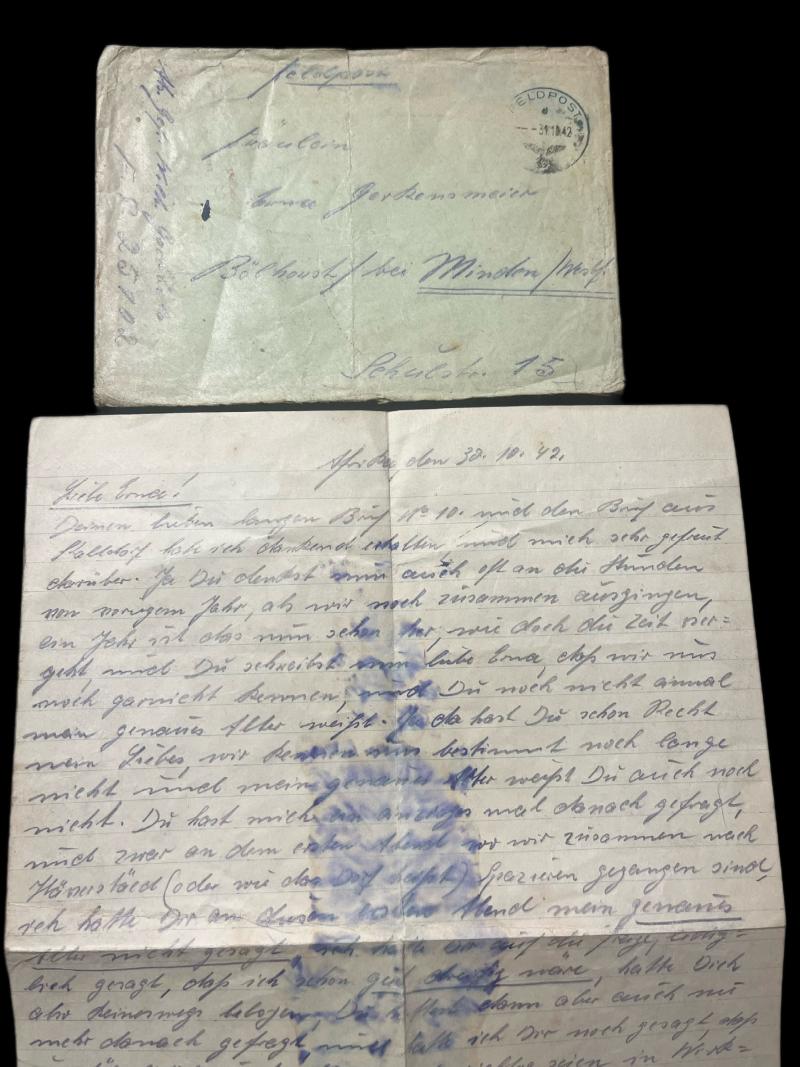 Feldpost
FELDPOST
31.10.42
Fräulein
Erna Gerkensmeier
Bölhorst/ bei Minden/Westf.
Schulstr. 15
25102
Afrika den 30. 10. 42.
Liebe Erna!
Deinen lieben langen Brief No 10. und den Brief aus
habe ich dankend erhalten, und mich sehr gefreut
darüber. Ja Du denkst nun auch oft an die Stunden
von vorigem Jahr, als wir noch zusammen ausgingen,
ein Jahr ist das nun schon her, wie doch die Zeit ver=
geht, und Du schreibst mir liebe Erna, daß wir uns
noch garnicht kennen, und Du noch nicht einmal
mein genaues Alter weißt. Ja da hast Du schon Recht
mein Liebes, wir kennen uns bestimmt noch lange
nicht und mein genaues Alter weißt Du auch noch
nicht. Du hast mich ein einziges mal danach gefragt,
und zwar an dem ersten Abend wo wir zusammen nach
(oder wie das Dorf heißt) spazieren gegangen sind,
ich hatte Dir an diesem ersten Abend mein genaues
Alter nicht gesagt, ich hatte Dir auf die Frage, ledig=
lich gesagt, daß ich schon gut dreißig wäre, hatte Dich
also keineswegs belogen, Du hast dann aber auch nie
mehr danach gefragt, und hatte ich Dir noch gesagt, daß
seien in Werk=